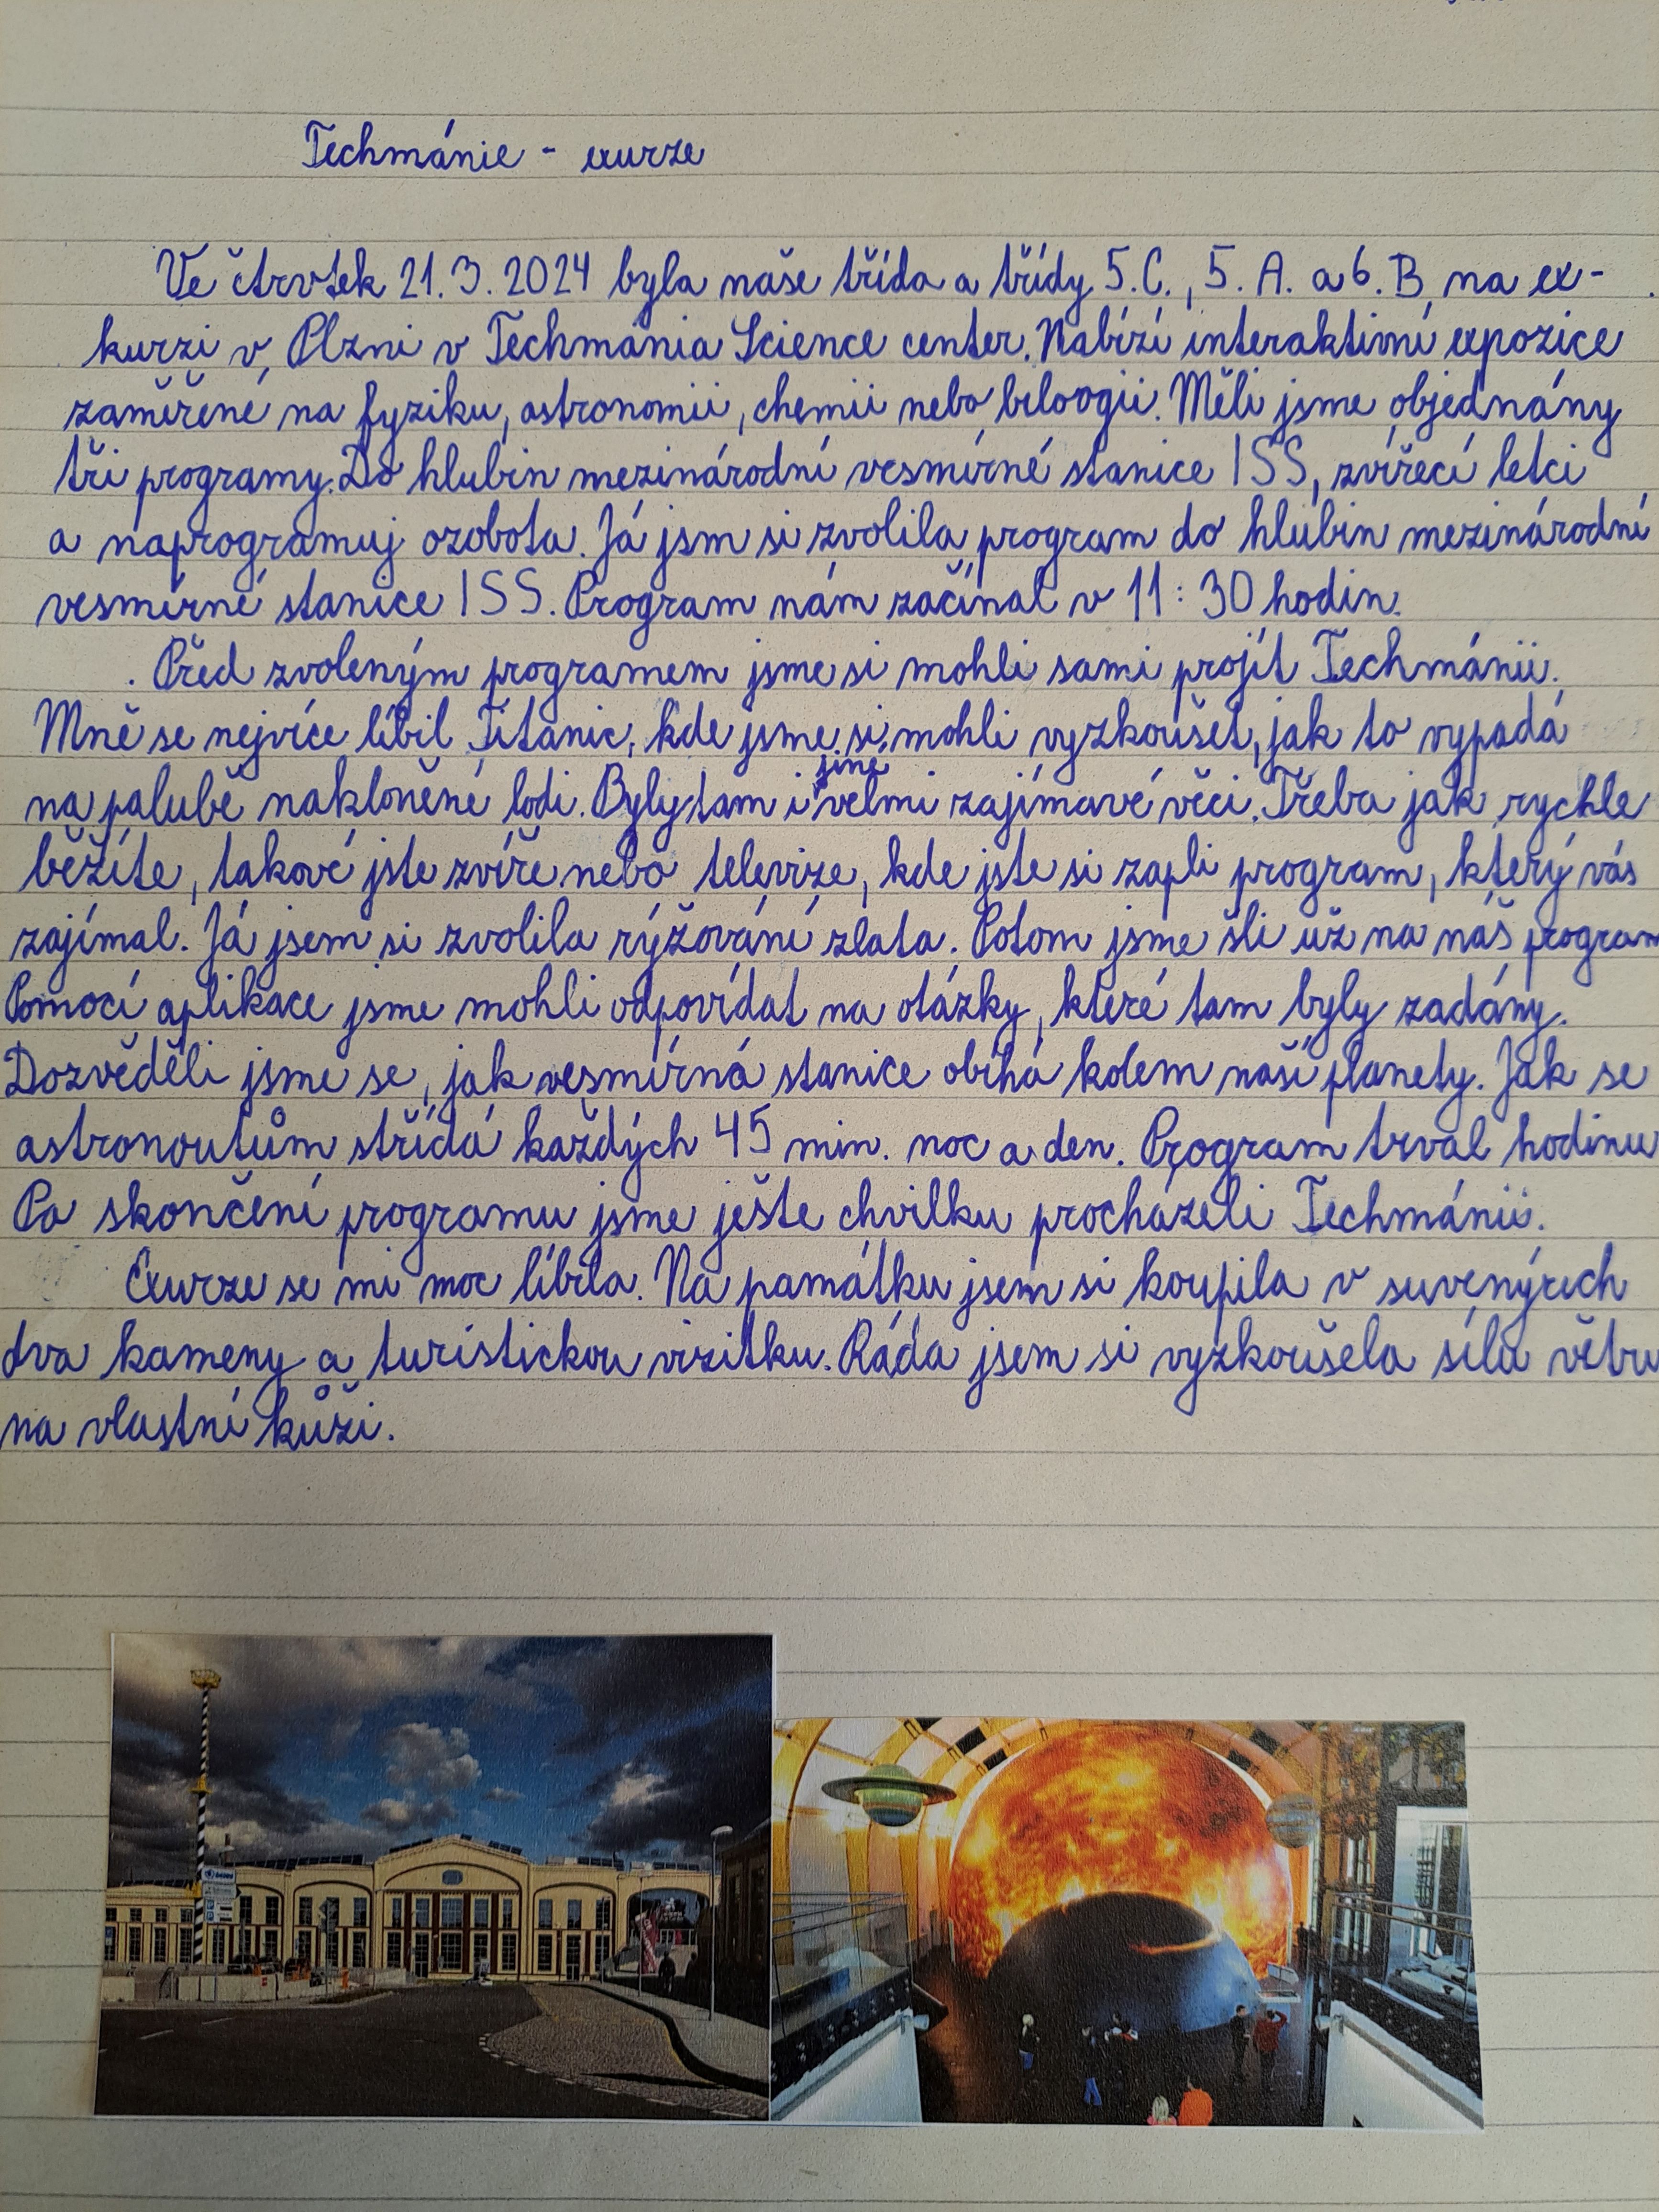 Techmánie - exurze
Ve čtvrtek 21.3.2024 byla naše třída a třídy 5.C., 5.A. a 6.B na ex-
kurzi v Plzni v Techmánia Science center. Nabízí interaktivní expozice
zaměřené na fyziku, astronomii, chemii nebo biloogii. Měli jsme objednány
tři programy. Do hlubin mezinárodní vesmírné stanice ISS, zvířecí letci
a naprogramuj ozobota. Já jsm si zvolila program do hlubin mezinárodní
vesmírné stanice ISS. Program nám začínal v 11:30 hodin.
Před zvoleným programem jsme si mohli sami projít Techmánii.
Mně se nejvíce líbil Titanic, kde jsme si mohli vyzkoušet, jak to vypadá
na palubě nakloněné lodi. Byly tam i jiné velmi zajímavé věci. Třeba jak rychle
běžíte, takové jste zvíře nebo televize, kde jste si zapli program, který vás
zajímal. Já jsem si zvolila rýžování zlata. Potom jsme šli už na náš program
Pomocí aplikace jsme mohli odpovídat na otázky, které tam byly zadány.
Dozvěděli jsme se, jak vesmírná stanice obíhá kolem naší planety. Jak se
astronoutům střídá každých 45 min. noc a den. Program trval hodinu
Po skončení programu jsme ješte chvilku procházeli Techmánii.
Exurze se mi moc líbila. Na památku jsem si koupila v suvenýrich
dva kameny a turistickou vizitku. Ráda jsem si vyzkoušela sílu větru
na vlastní kůži.